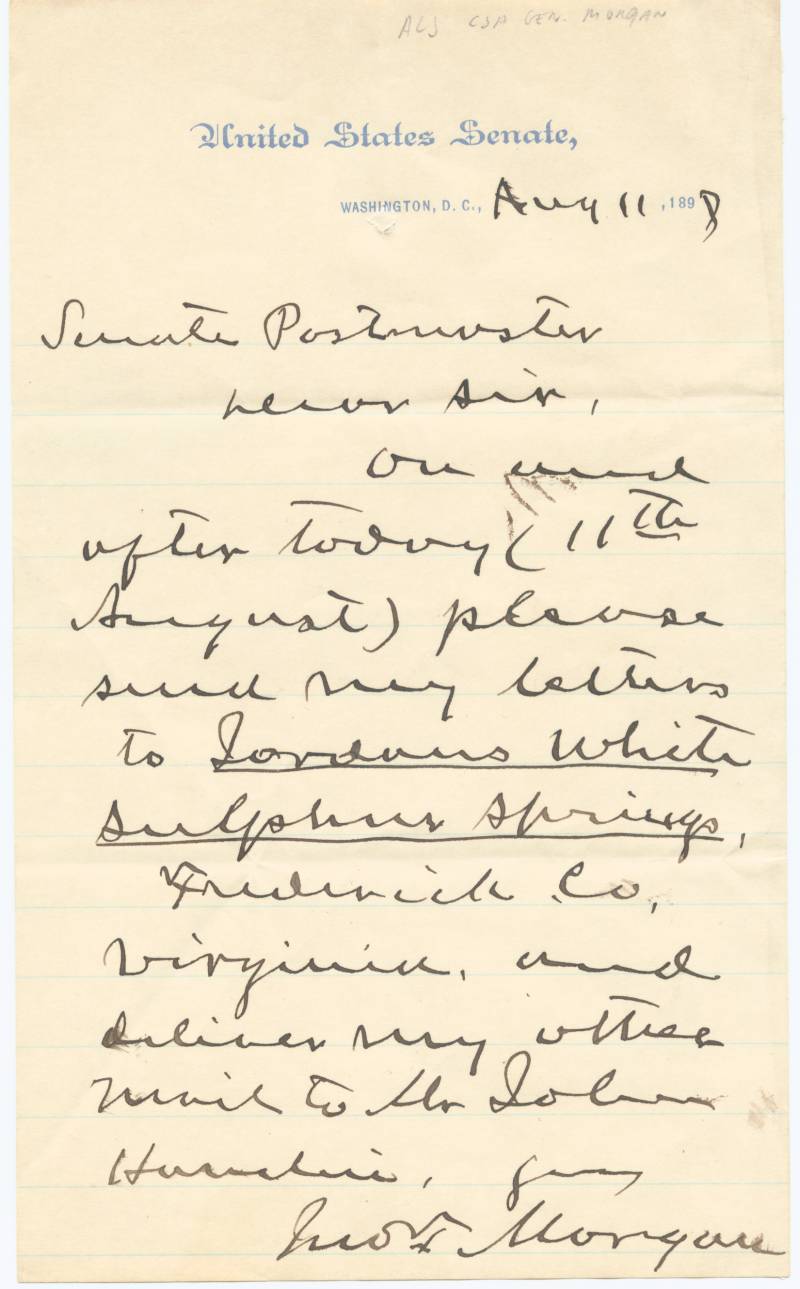 ALS CSA GEN. MORGAN
United States Senate,
WASHINGTON, D. C., Aug 11, 1898
Senate Postmaster
Dear Sir,
On and
after today (11th
August) please
send my letters
to Jordans White
Sulphur Springs,
Frederick Co,
Virginia, and
deliver my other
mail to Mr John
Jno T. Morgan